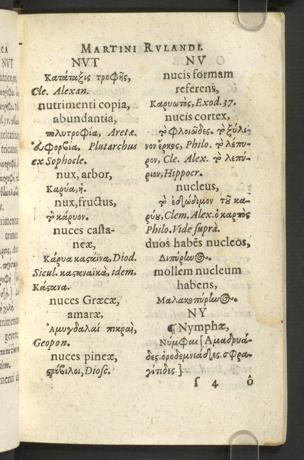 MARTINI RVLANDI
NVT
Κατάταξις τροφῆς,
Cle. Alexan.
nutrimenti copia,
abundantia,
πολυτροφία, Aretæ.
ἀφθορσία, Plutarchus
ex Sophocle.
nux, arbor,
Καρύα, ἡ.
nux, fructus,
τὸ κάρυον.
nuces casta-
neæ,
Κάρυα καστάινα, Diod.
Sicul. καστανιαϊκὰ, idem.
Κάστανα.
nuces Græcæ,
amaræ,
Ἀμυγδαλαὶ πικραὶ,
Geopon.
nuces pineæ,
στρόβιλοι, Diosc.
NV
nucis formam
referens,
Καρυωτὸς, Exod. 37.
nucis cortex,
τὸ φλοιῶδες. τὸ ξύλι-
νον ἕρκος, Philo. τὸ λέπυ-
ρον, Cle. Alex. τὸ λεπύ-
ριον, Hippocr.
nucleus,
τὸ ἐδώδιμον τοῦ κα-
ρύου, Clem. Alex. ὁ καρπὸς
Philo. Vide suprà.
duos habẽs nucleos,
Διπύρηνος.
mollem nucleum
habens,
Μαλακοπύρηνος.
NY
¶ Nymphæ,
Νύμφαι [Ἁμαδρυά-
δες. ὀροδεμνιάδες. σφρα-
γίτιδες].
ſ 4 ὁ